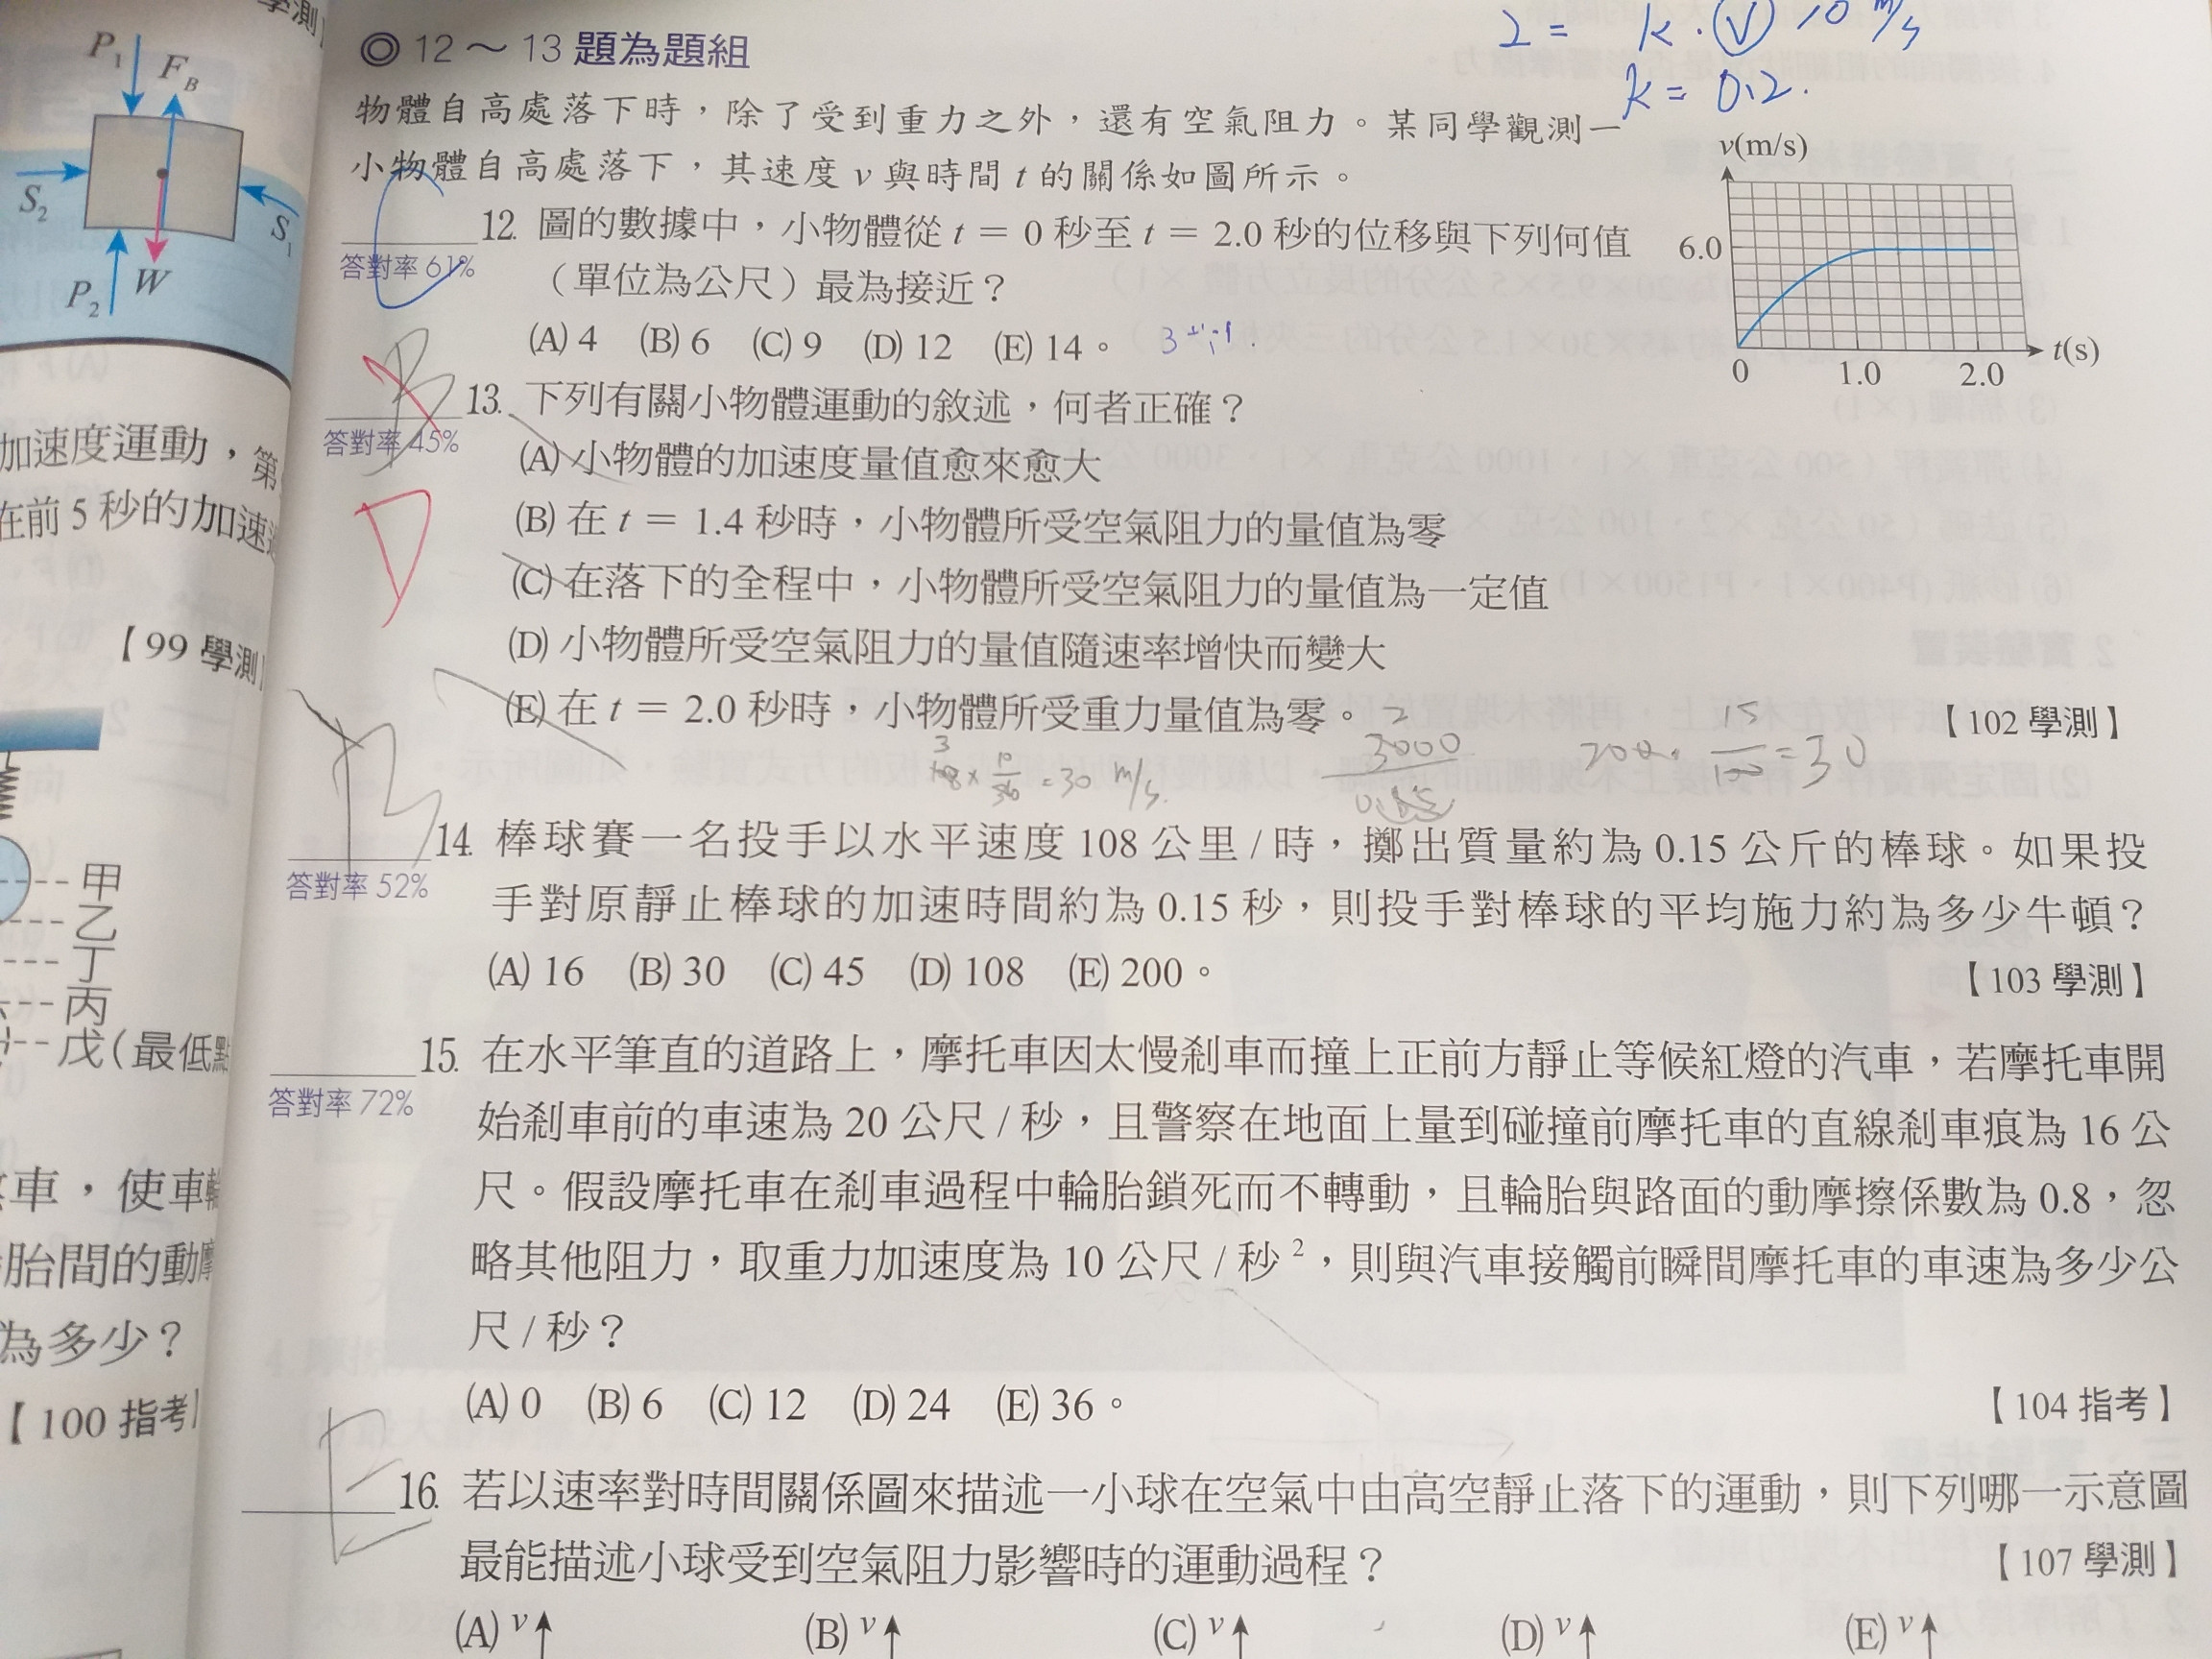 學測】
P₁
F_B
S₂
S₁
W
P₂
加速度運動，第
在前 5 秒的加速
【99 學測】
甲
乙
丁
丙
戊(最低點
車，使車輪
胎間的動摩
為多少？
【100 指考】
2 = k · v 10 m/s
k = 0.2.
◎ 12～13 題為題組
物體自高處落下時，除了受到重力之外，還有空氣阻力。某同學觀測一
小物體自高處落下，其速度 v 與時間 t 的關係如圖所示。
v(m/s)
6.0
0 1.0 2.0 t(s)
C
答對率 61%
12. 圖的數據中，小物體從 t = 0 秒至 t = 2.0 秒的位移與下列何值
（單位為公尺）最為接近？
(A) 4 (B) 6 (C) 9 (D) 12 (E) 14。
B
D
答對率 45%
13. 下列有關小物體運動的敘述，何者正確？
(A) 小物體的加速度量值愈來愈大
(B) 在 t = 1.4 秒時，小物體所受空氣阻力的量值為零
(C) 在落下的全程中，小物體所受空氣阻力的量值為一定值
(D) 小物體所受空氣阻力的量值隨速率增快而變大
(E) 在 t = 2.0 秒時，小物體所受重力量值為零。
【102 學測】
3
108 × 10/36 = 30 m/s.
3000
200 · 15/100 = 30
B
答對率 52%
14. 棒球賽一名投手以水平速度 108 公里 / 時，擲出質量約為 0.15 公斤的棒球。如果投
手對原靜止棒球的加速時間約為 0.15 秒，則投手對棒球的平均施力約為多少牛頓？
(A) 16 (B) 30 (C) 45 (D) 108 (E) 200。
【103 學測】
答對率 72%
15. 在水平筆直的道路上，摩托車因太慢剎車而撞上正前方靜止等候紅燈的汽車，若摩托車開
始剎車前的車速為 20 公尺 / 秒，且警察在地面上量到碰撞前摩托車的直線剎車痕為 16 公
尺。假設摩托車在剎車過程中輪胎鎖死而不轉動，且輪胎與路面的動摩擦係數為 0.8，忽
略其他阻力，取重力加速度為 10 公尺 / 秒²，則與汽車接觸前瞬間摩托車的車速為多少公
尺 / 秒？
(A) 0 (B) 6 (C) 12 (D) 24 (E) 36。
【104 指考】
E
16. 若以速率對時間關係圖來描述一小球在空氣中由高空靜止落下的運動，則下列哪一示意圖
最能描述小球受到空氣阻力影響時的運動過程？
【107 學測】
(A) v (B) v (C) v (D) v (E) v